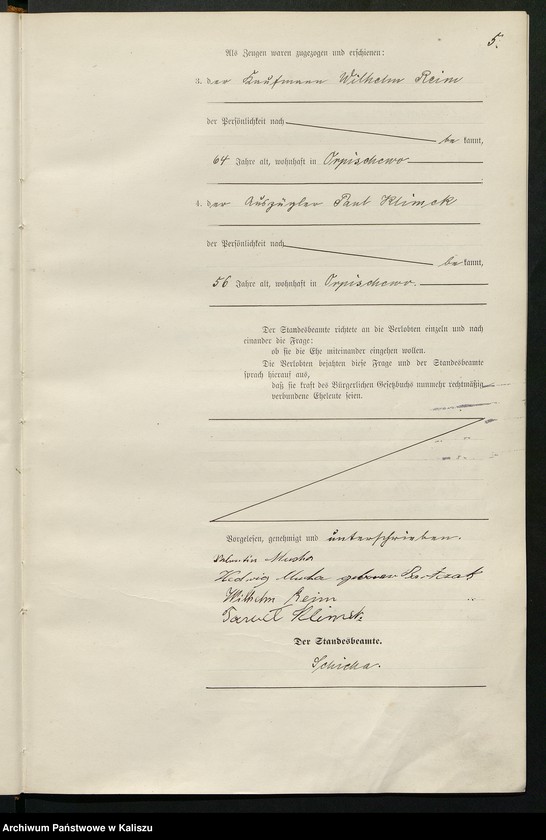 5.
Als Zeugen waren zugezogen und erschienen:
3. der Kaufmann Wilhelm Reim
der Persönlichkeit nach
be kannt,
64 Jahre alt, wohnhaft in Orpischewo
4. der Auszügler Paul Klimek
der Persönlichkeit nach
be kannt,
56 Jahre alt, wohnhaft in Orpischewo.
Der Standesbeamte richtete an die Verlobten einzeln und nach
einander die Frage:
ob sie die Ehe miteinander eingehen wollen.
Die Verlobten bejahten diese Frage und der Standesbeamte
sprach hierauf aus,
daß sie kraft des Bürgerlichen Gesetzbuchs nunmehr rechtmäßig
verbundene Eheleute seien.
Vorgelesen, genehmigt und unterschrieben.
Valentin Mucha
Hedwig Mucha geboren
Wilhelm Reim
Klimek
Der Standesbeamte.
Schicha.
Archiwum Państwowe w Kaliszu